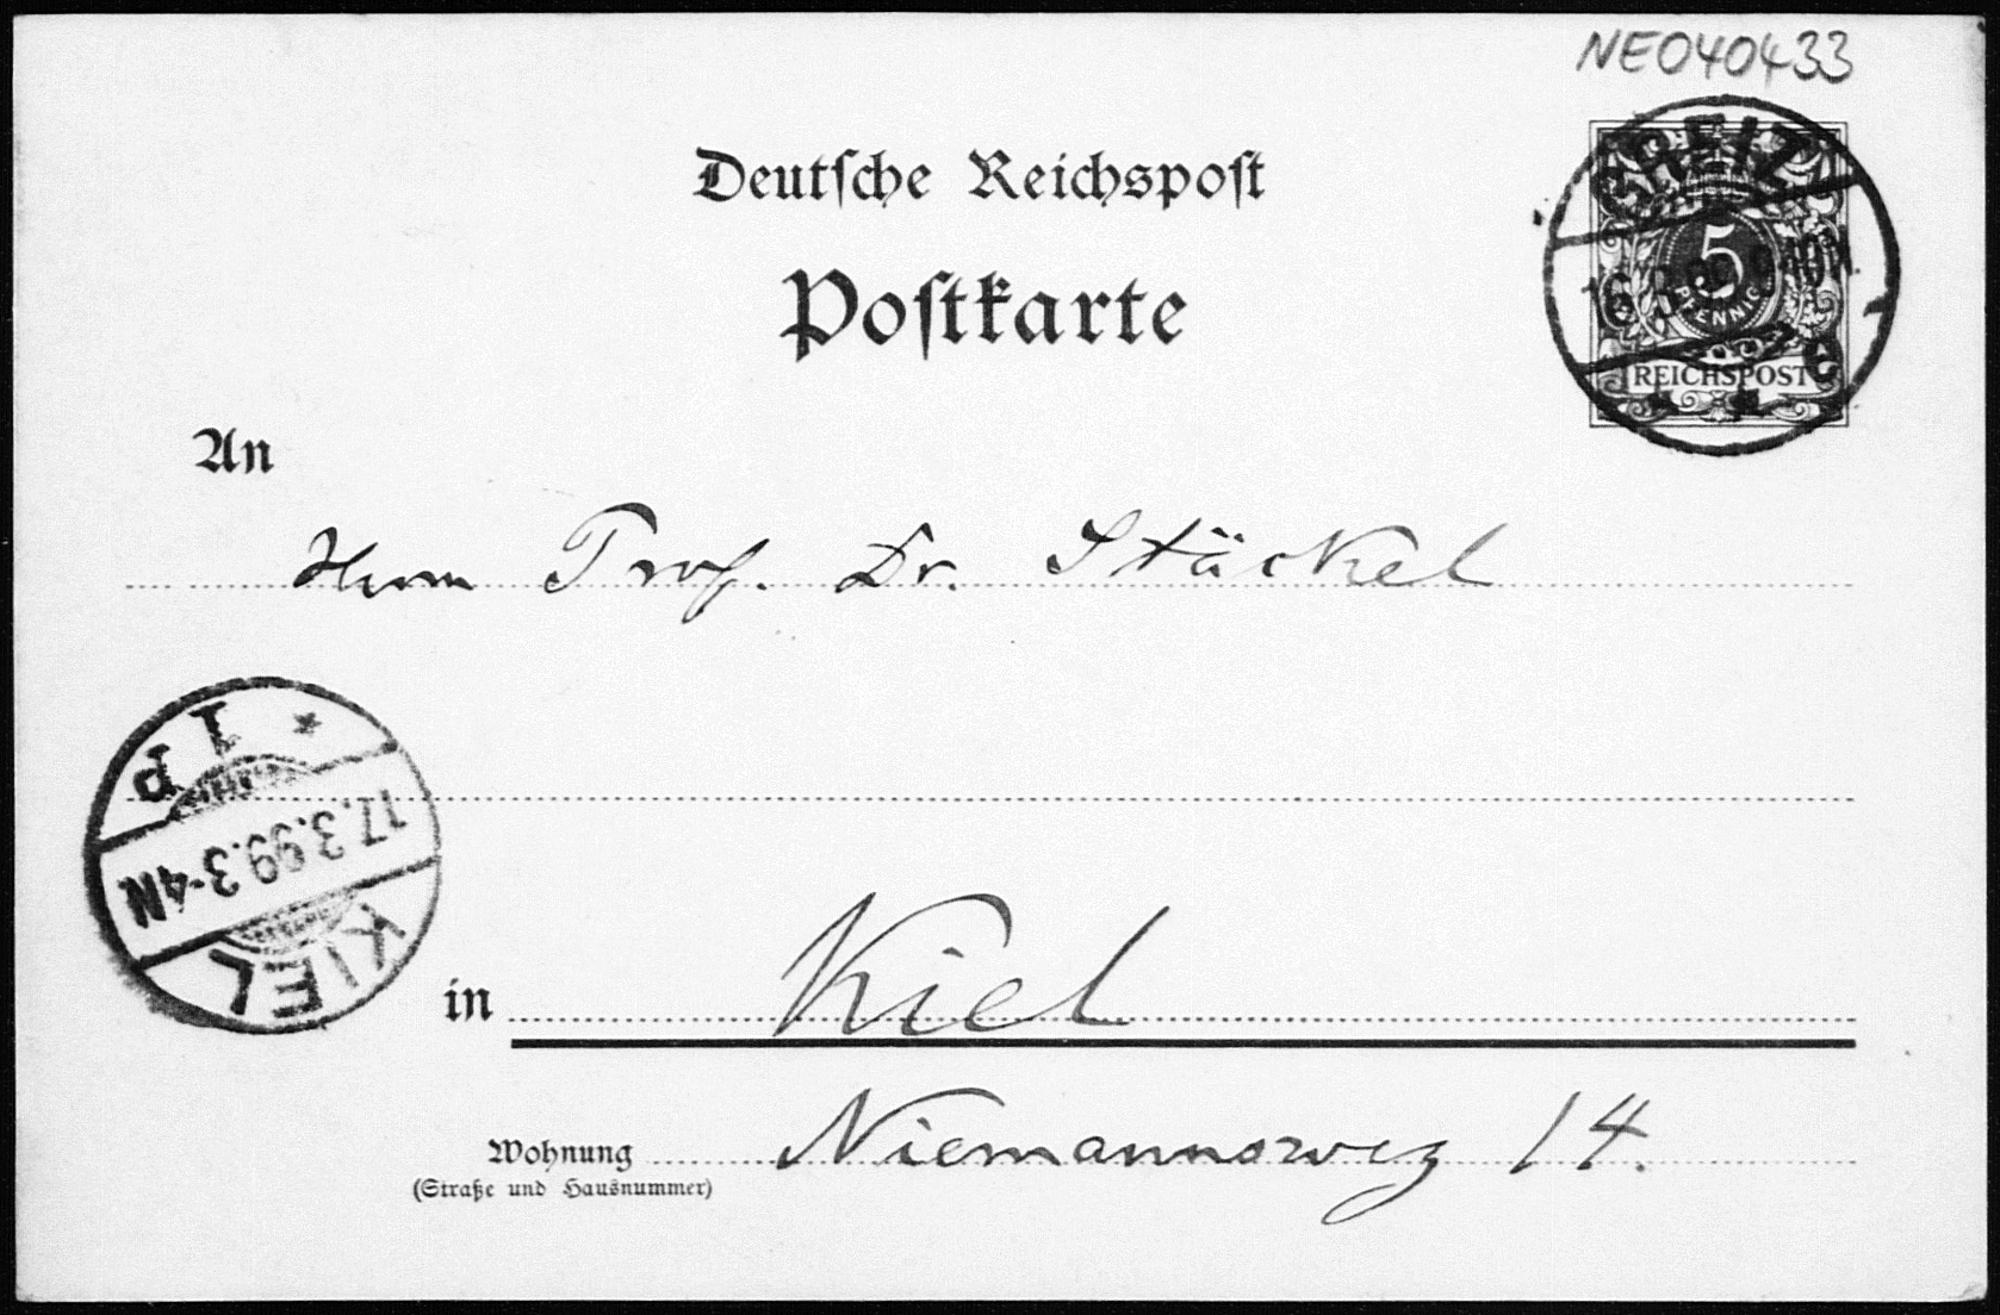 NE040433
Deutsche Reichspost
Postkarte
GREIZ
16
5
PFENNIG
REICHSPOST
An
Herrn Prof. Dr. Stäckel
KIEL
17.3.99.3-4N
1P
in Kiel
Wohnung Niemannsweg 14.
(Straße und Hausnummer)